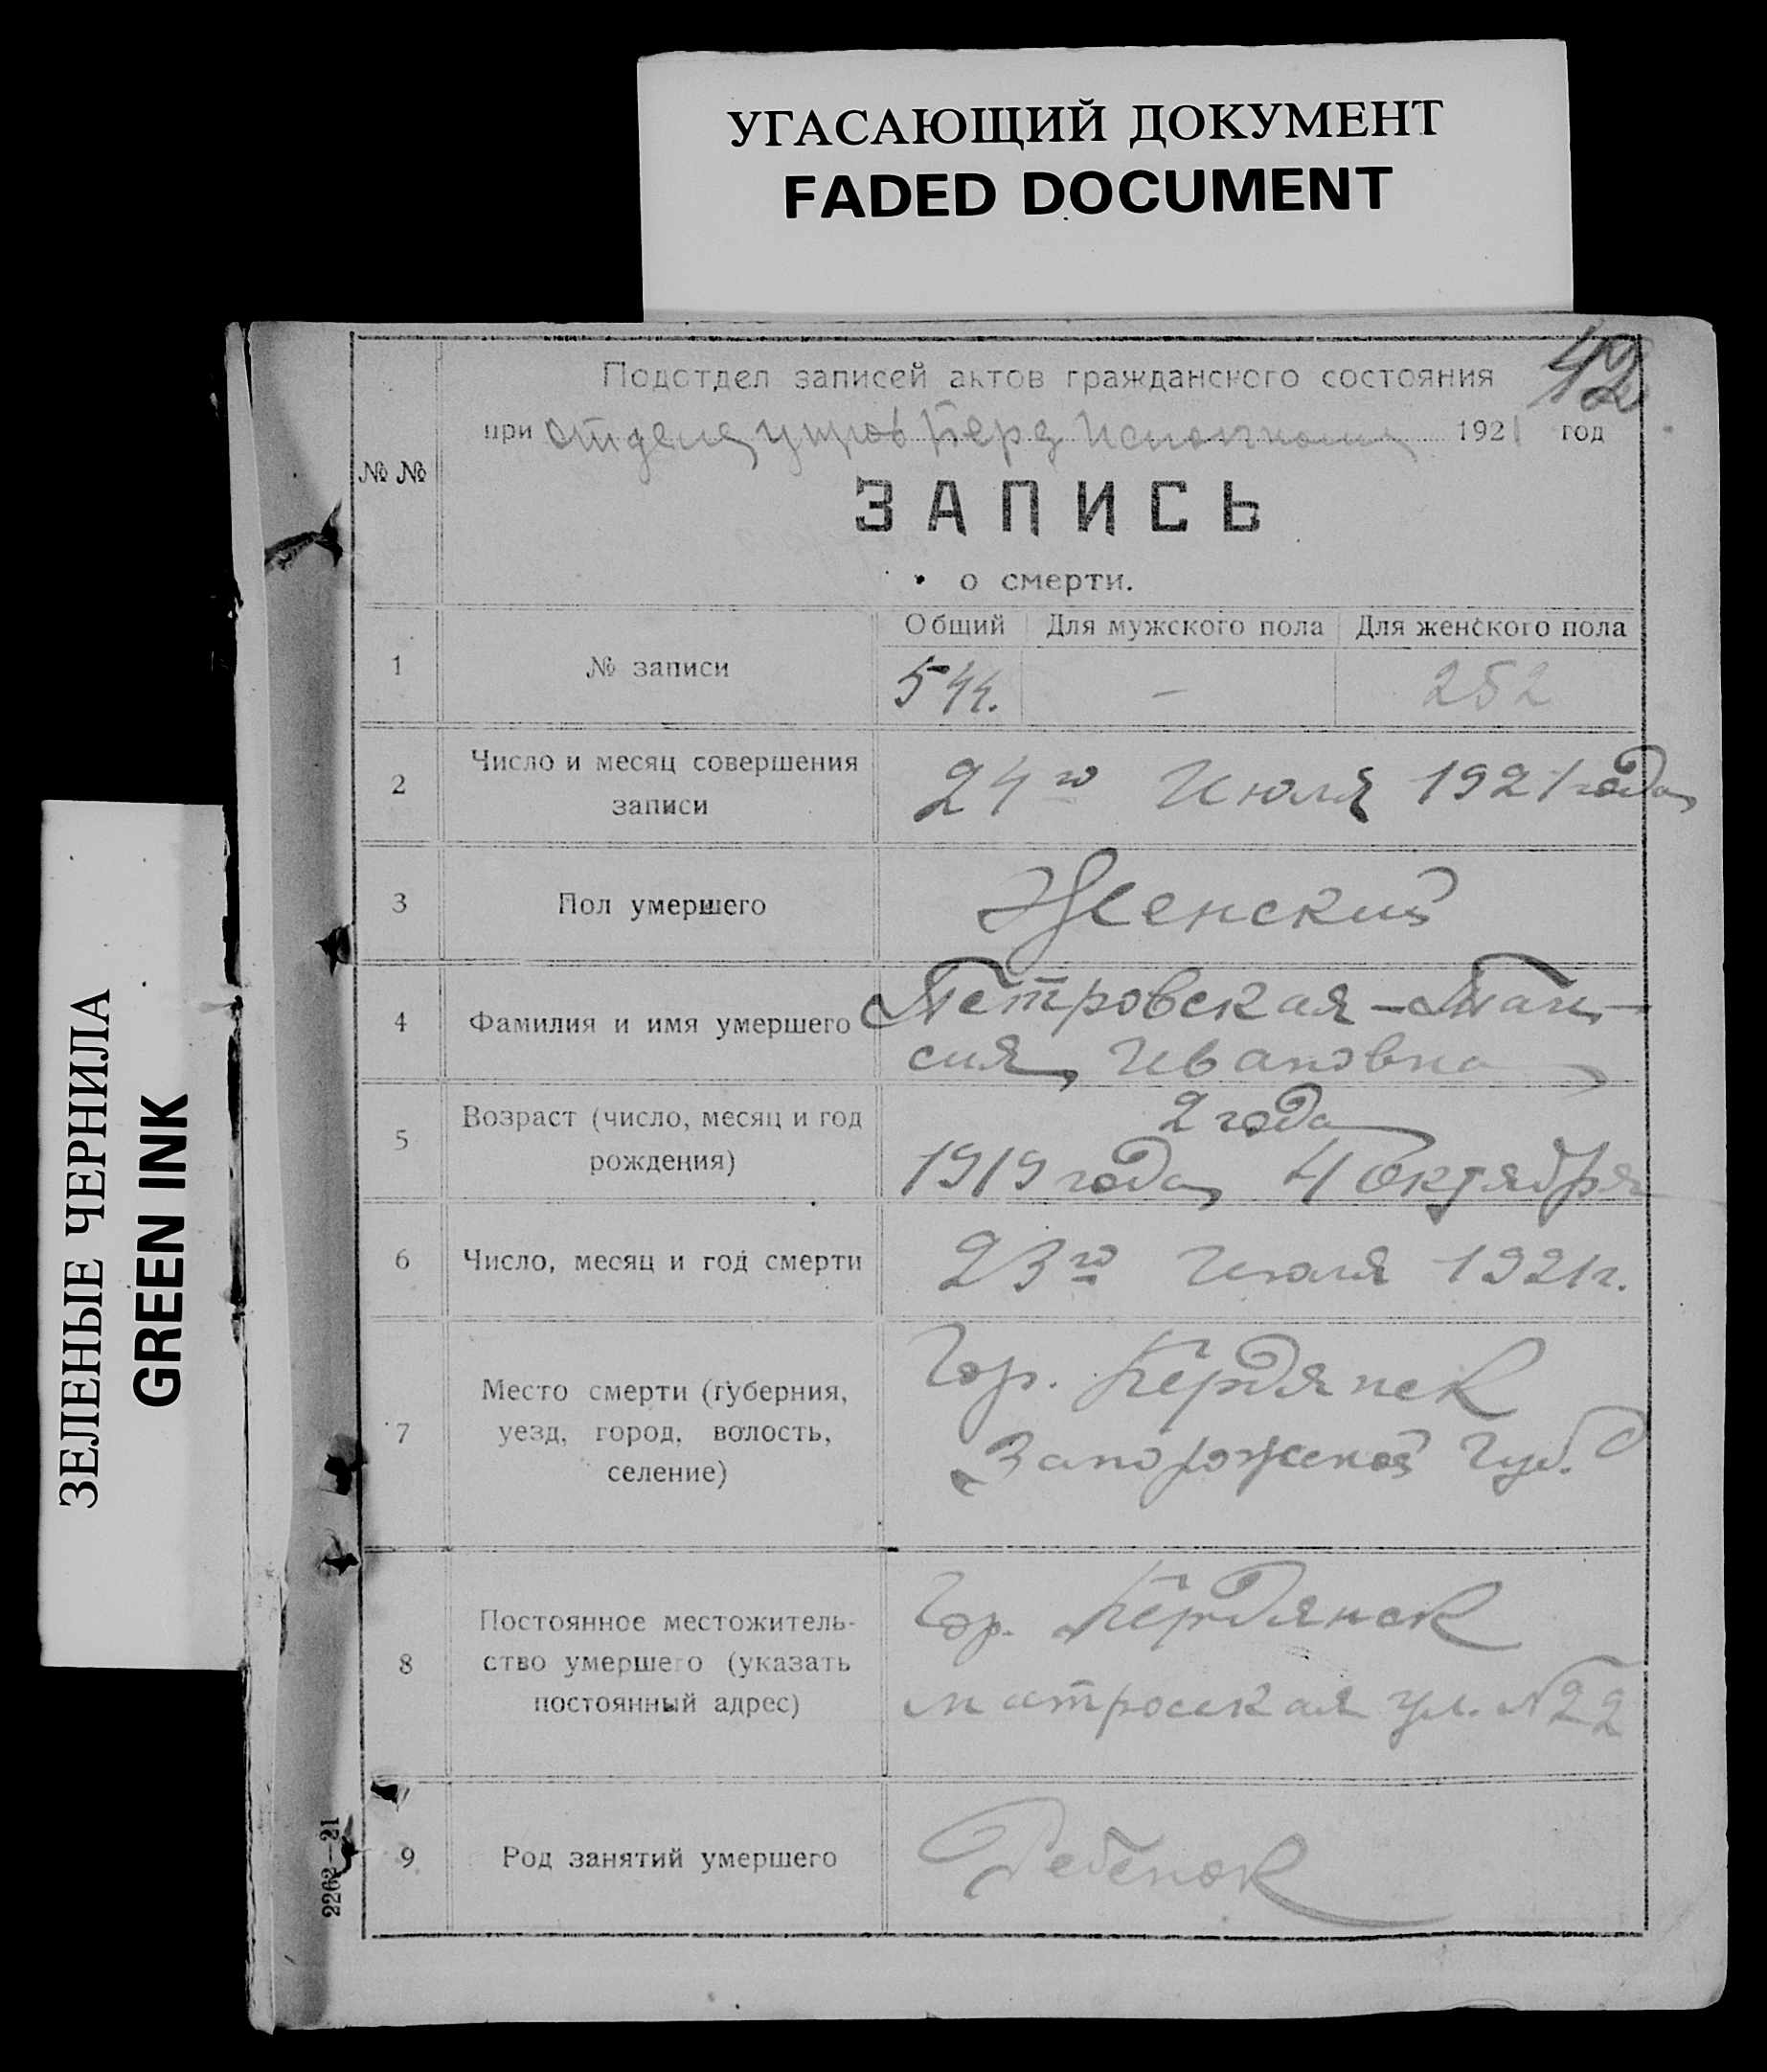 УГАСАЮЩИЙ ДОКУМЕНТ
FADED DOCUMENT
ЗЕЛЕНЫЕ ЧЕРНИЛА
GREEN INK
42
Подотдел записей актов гражданского состояния
при отделе управ Берд Исполкома 1921 год
№ №
ЗАПИСЬ
о смерти.
Общий Для мужского пола Для женского пола
1 № записи 544. – 252
2 Число и месяц совершения
записи
24го Июля 1921 года
3 Пол умершего Женский
4 Фамилия и имя умершего
Петровская – Таи-
сия Ивановна
5 Возраст (число, месяц и год
рождения)
2 года
1919 года 4 Октября
6 Число, месяц и год смерти 23го Июля 1921 г.
7 Место смерти (губерния,
уезд, город, волость,
селение)
Гор. Бердянск
Запорожской Губ.
8 Постоянное местожитель-
ство умершего (указать
постоянный адрес)
Гор. Бердянск
матросская ул. №22
9 Род занятий умершего Ребенок
2262—21